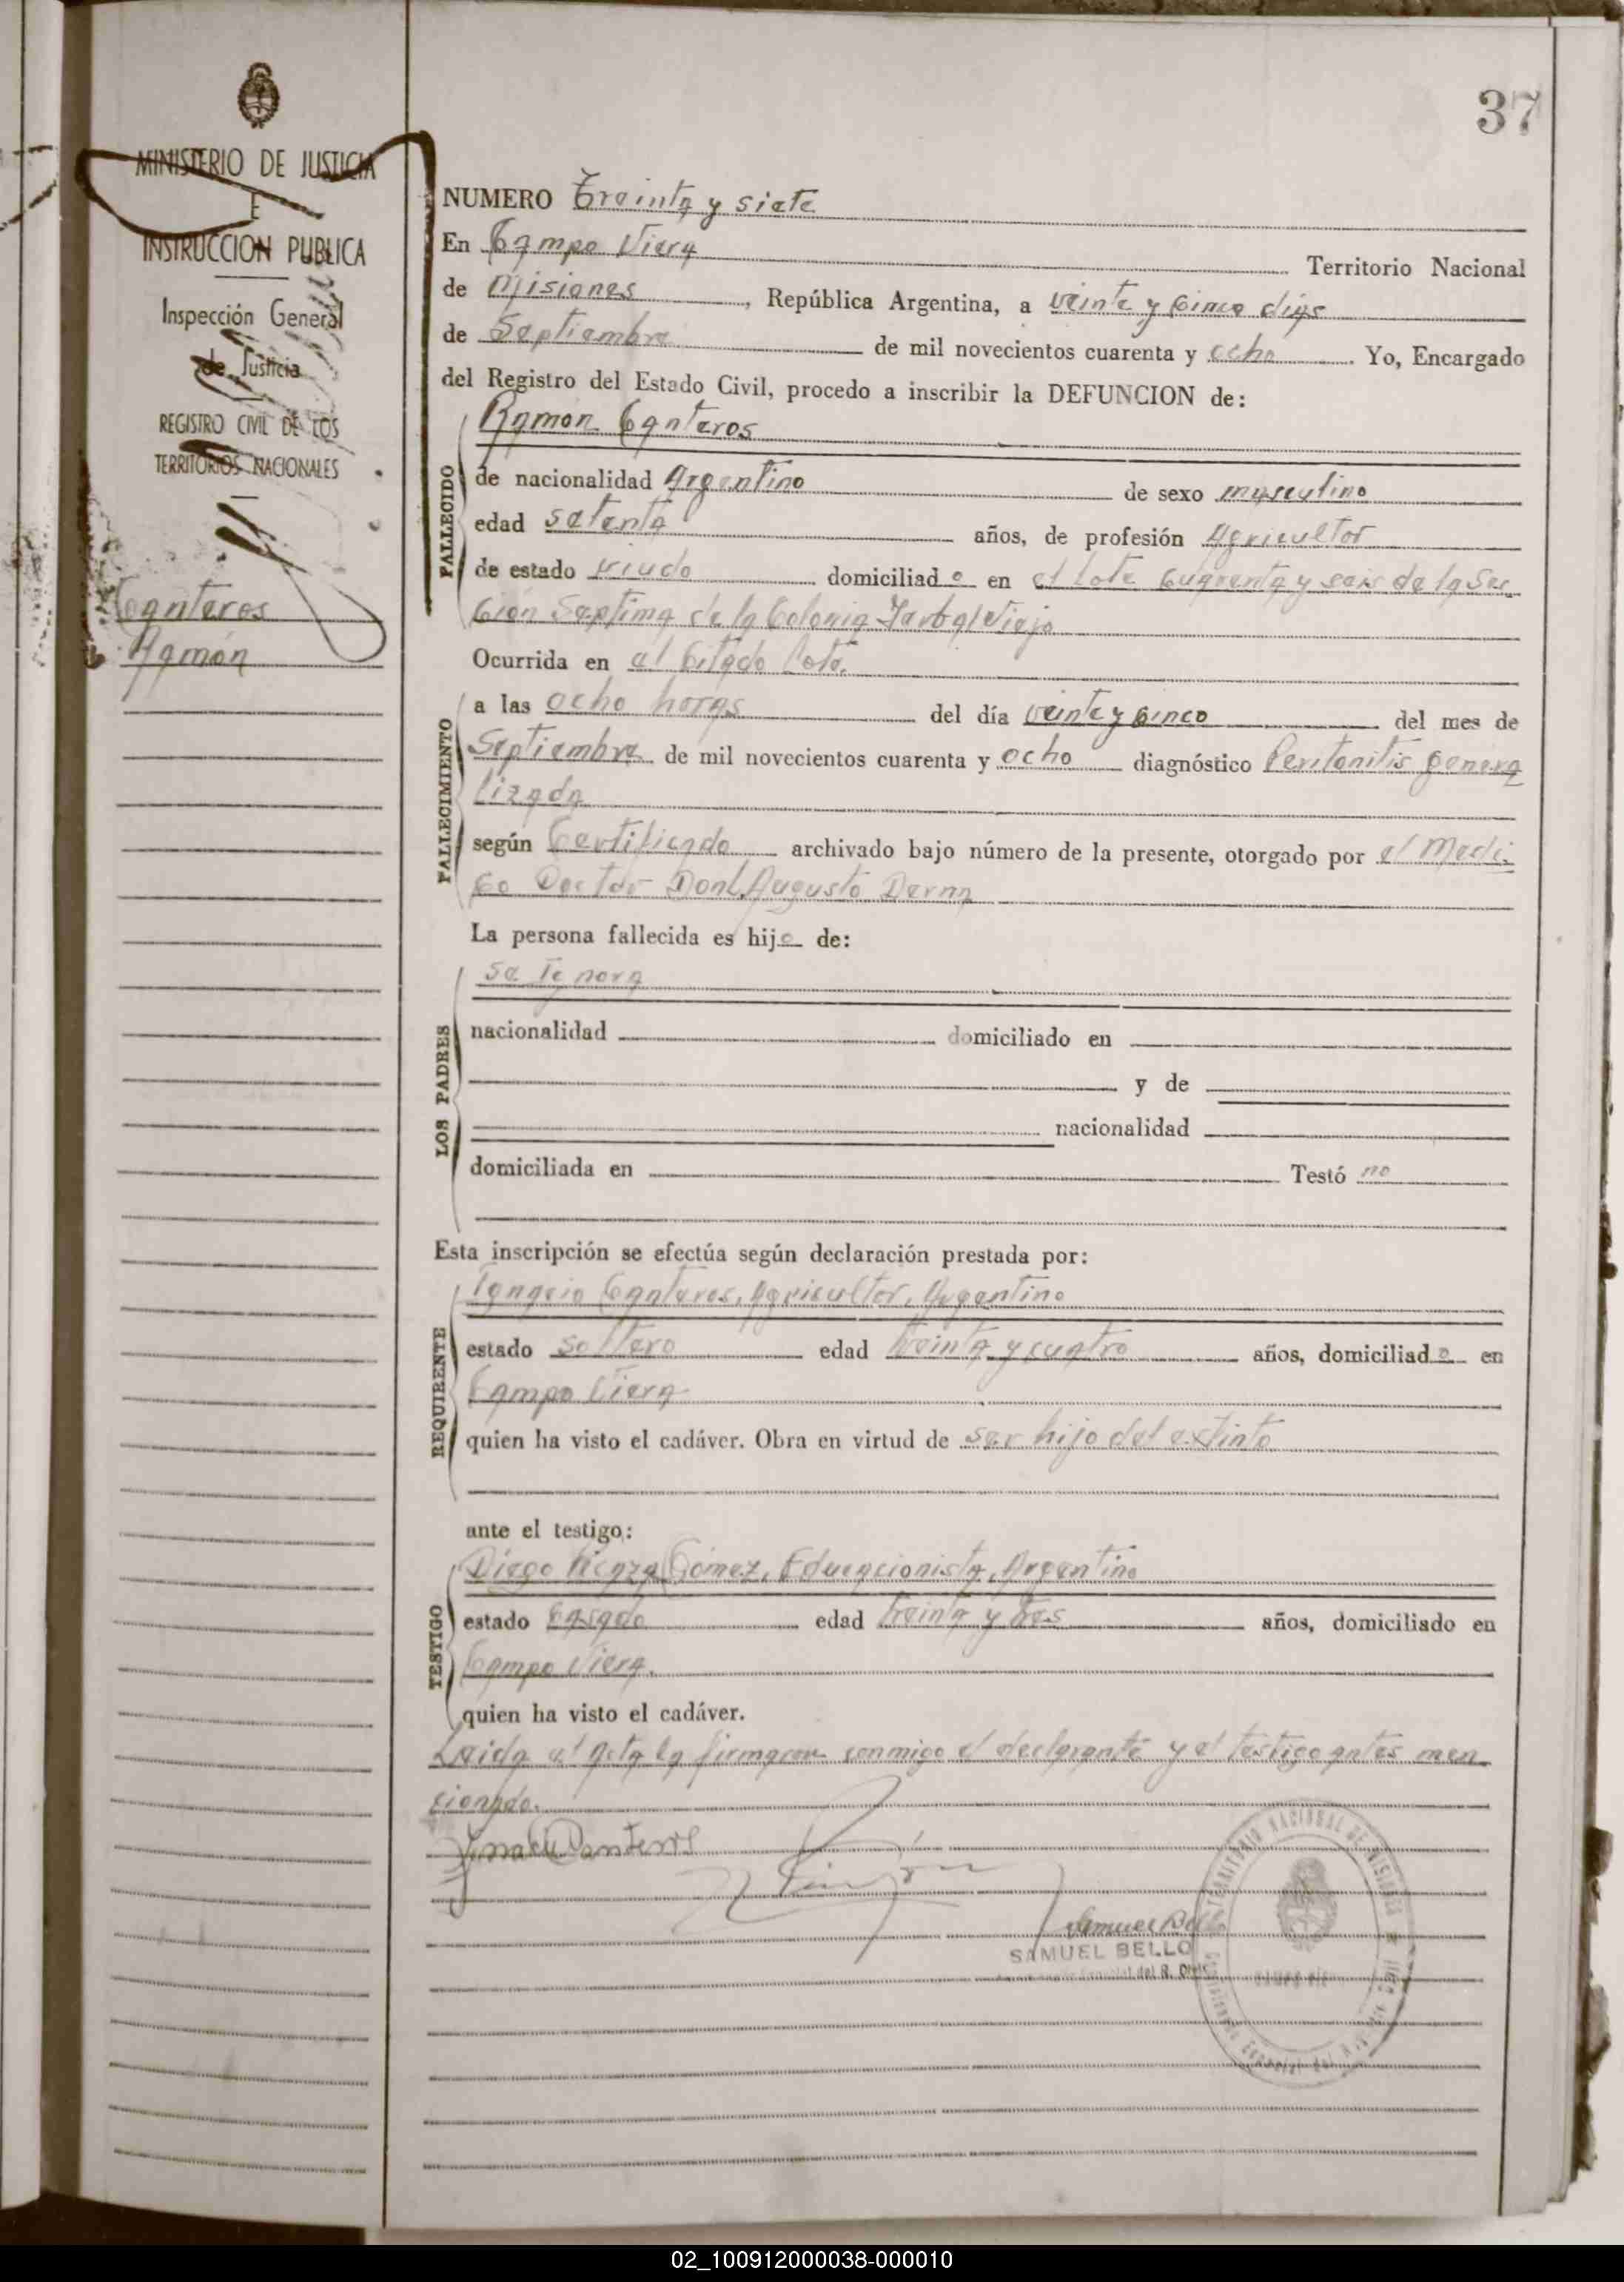 37
MINISTERIO DE JUSTICIA
E
INSTRUCCION PUBLICA
Inspección General
de Justicia
REGISTRO CIVIL DE LOS
TERRITORIOS NACIONALES
Canteros
Ramón
NUMERO Treinta y siete
En Campo Viera Territorio Nacional
de Misiones, República Argentina, a veinte y cinco días
de Septiembre de mil novecientos cuarenta y ocho. Yo, Encargado
del Registro del Estado Civil, procedo a inscribir la DEFUNCION de:
Ramon Canteros
FALLECIDO
de nacionalidad Argentino de sexo masculino
edad setenta años, de profesión Agricultor
de estado viudo domiciliado en el lote cuarenta y seis de la Sec
ción Septima de la Colonia Yerbal Viejo
Ocurrida en el citado lote.
FALLECIMIENTO
a las ocho horas del día veinte y cinco del mes de
Septiembre de mil novecientos cuarenta y ocho diagnóstico Peritonitis genera
lizada
según Certificado archivado bajo número de la presente, otorgado por el Medi
co Doctor Don Augusto
La persona fallecida es hijo de:
LOS PADRES
se ignora
nacionalidad domiciliado en
y de
nacionalidad
domiciliada en Testó no
Esta inscripción se efectúa según declaración prestada por:
REQUIRENTE
Ignacio Canteros, Agricultor, Argentino
estado soltero edad treinta y cuatro años, domiciliado en
Campo Viera
quien ha visto el cadáver. Obra en virtud de ser hijo del extinto
ante el testigo:
TESTIGO
Diego Gómez, Educacionista, Argentino
estado Casado edad treinta y tres años, domiciliado en
Campo Viera.
quien ha visto el cadáver.
Leida el Acta la firmaron conmigo el declarante y el testigo antes men
cionado.
Canteros
SAMUEL BELLO
del R. Civil
TERRITORIO NACIONAL DE MISIONES
02_100912000038-000010